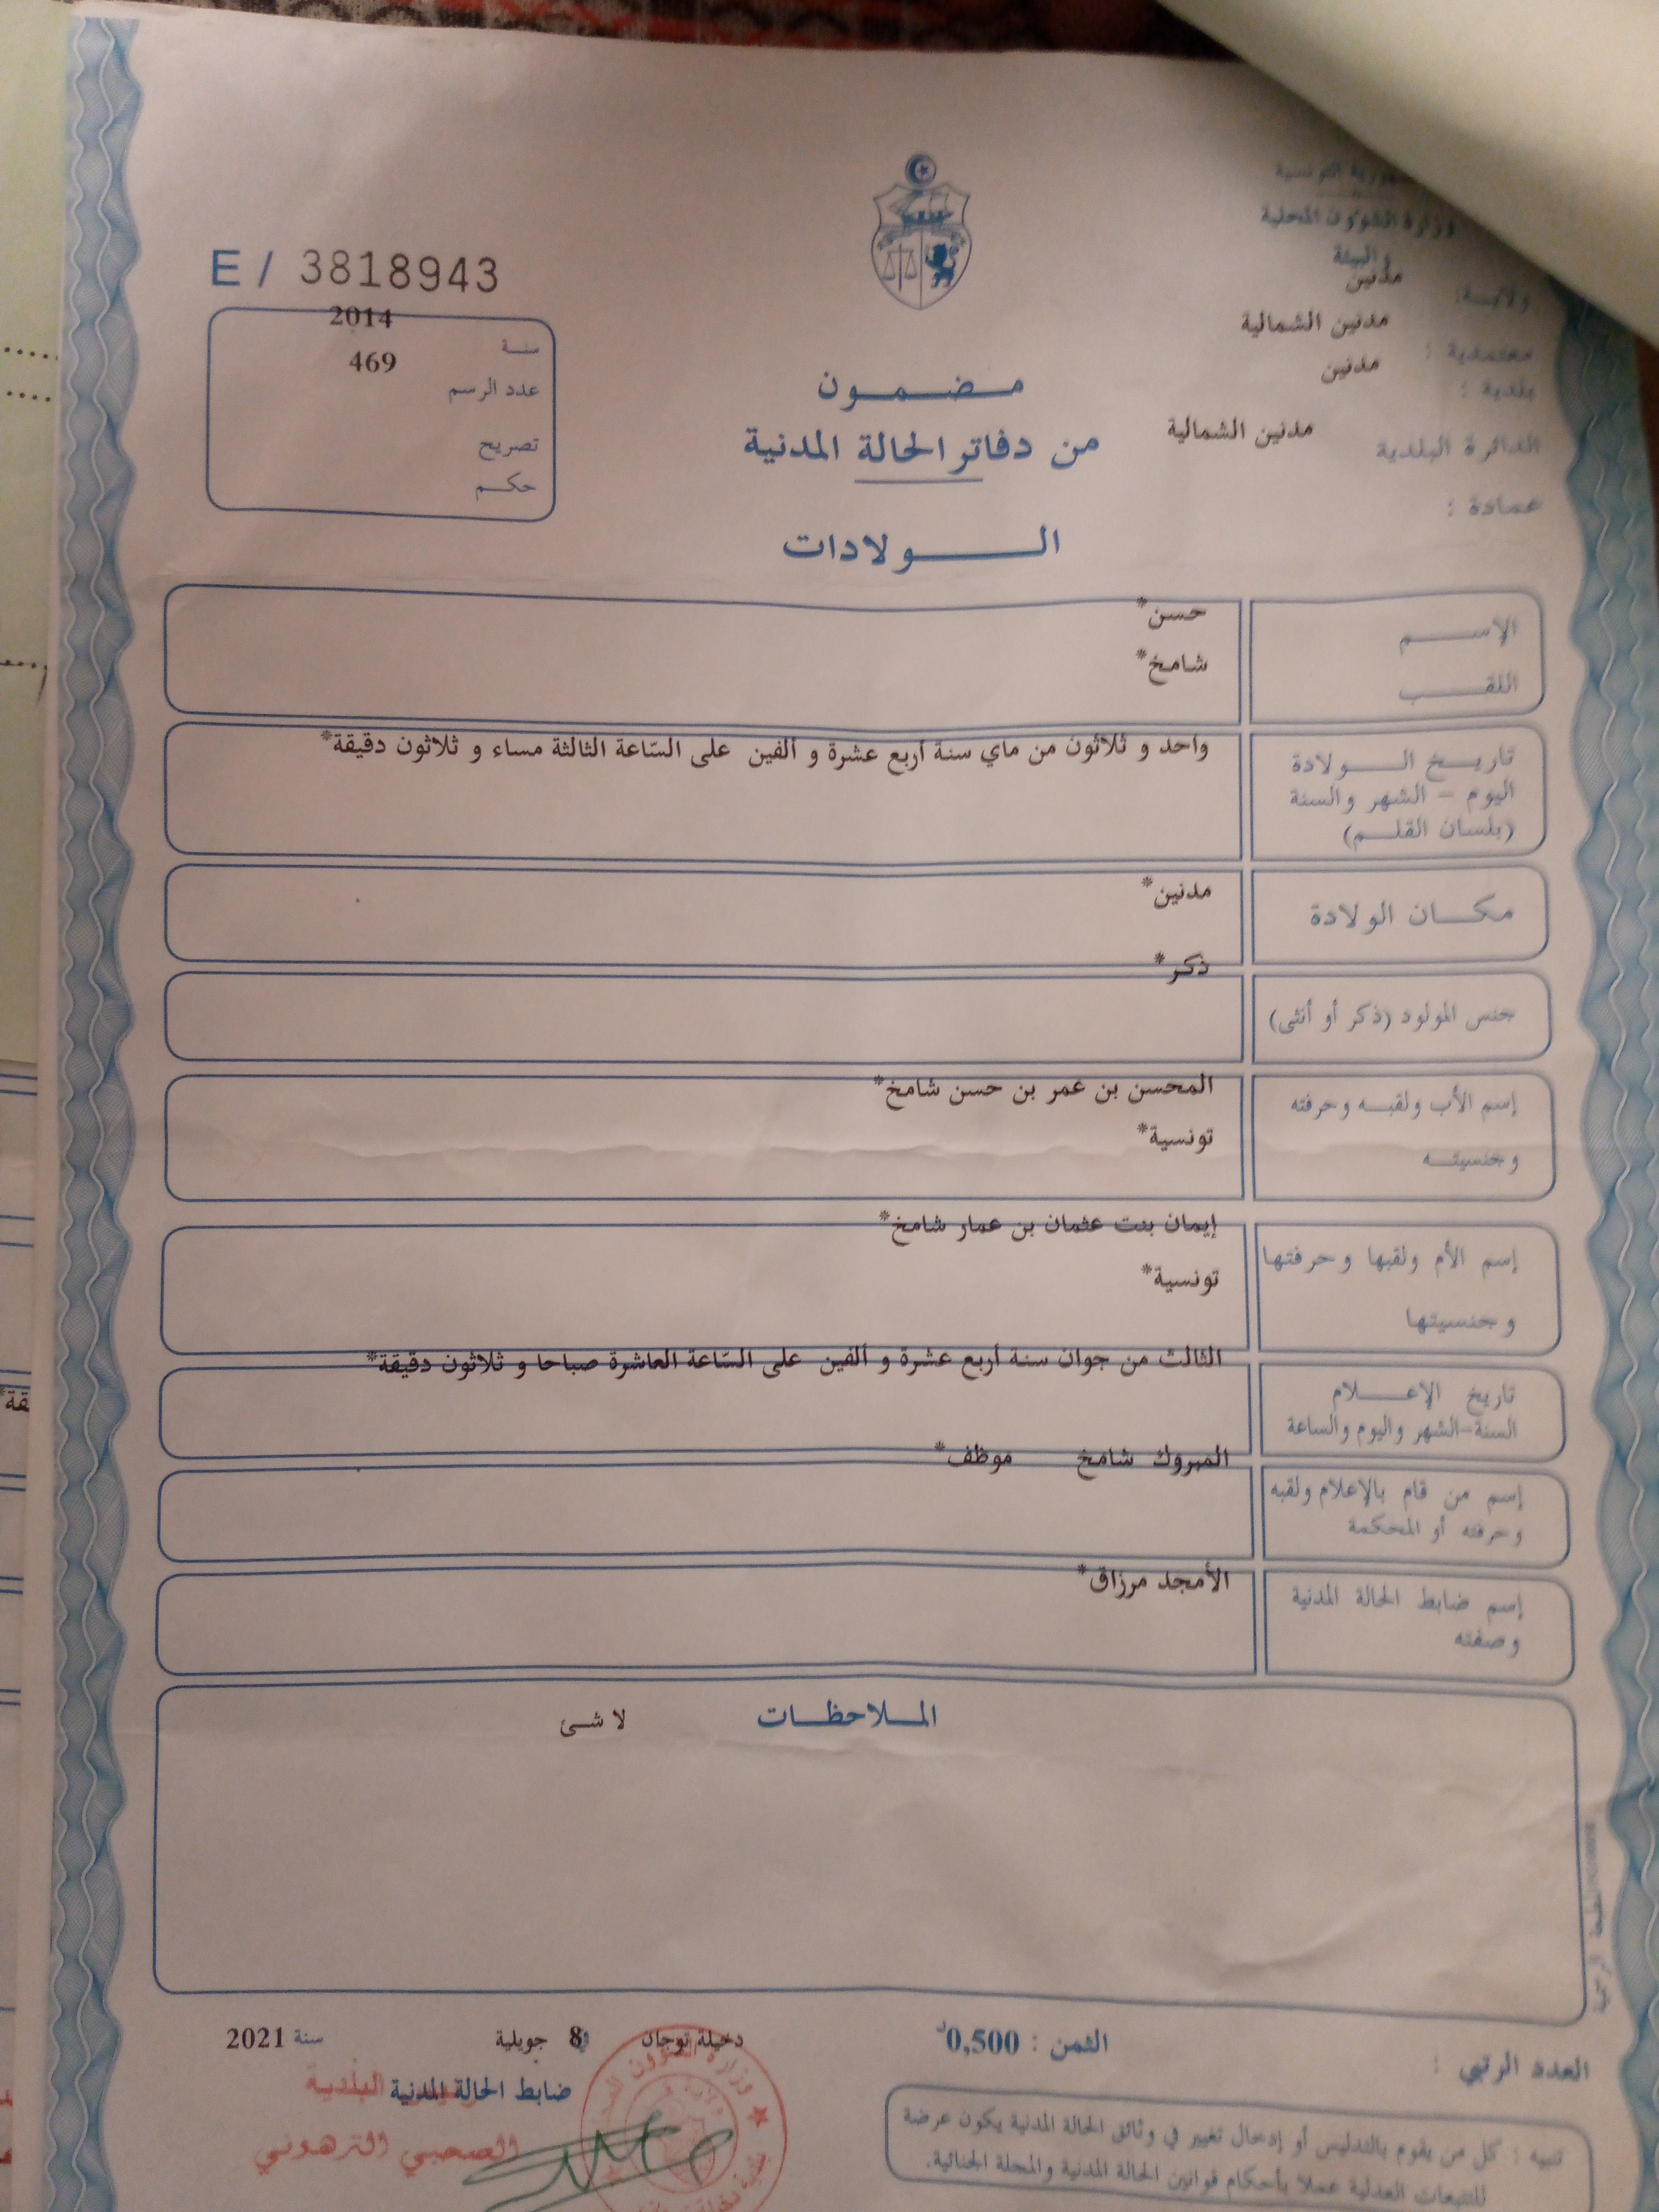 الجمهورية التونسية
وزارة الشؤون المحلية
والبيئة
ولايـــة: مدنين
معتمدية : مدنين الشمالية
بلدية : مدنين
الدائرة البلدية مدنين الشمالية
عمادة :
E / 3818943
سنة 2014
عدد الرسم 469
تصريح
حكم
مضمون
من دفاتر الحالة المدنية
الولادات
الإسم حسن*
اللقب شامخ*
تاريخ الولادة واحد و ثلاثون من ماي سنة أربع عشرة و ألفين على السّاعة الثالثة مساء و ثلاثون دقيقة*
اليوم - الشهر والسنة
(بلسان القلم)
مكان الولادة مدنين*
جنس المولود (ذكر أو أنثى) ذكر*
إسم الأب ولقبه وحرفته المحسن بن عمر بن حسن شامخ*
وجنسيته تونسية*
إسم الأم ولقبها وحرفتها إيمان بنت عثمان بن عمار شامخ*
وجنسيتها تونسية*
تاريخ الإعلام الثالث من جوان سنة أربع عشرة و ألفين على السّاعة العاشرة صباحا و ثلاثون دقيقة*
السنة-الشهر واليوم والساعة
إسم من قام بالإعلام ولقبه المبروك شامخ موظف*
وحرفته أو المحكمة
إسم ضابط الحالة المدنية الأمجد مرزاق*
وصفته
الملاحظات لا شئ
دخيلة توجان في 8 جويلية سنة 2021
الثمن : 0,500د
العدد الرتبي :
ضابط الحالة المدنية
البلدية
الصحبي الترهوني
تنبيه : كل من يقوم بالتدليس أو إدخال تغيير في وثائق الحالة المدنية يكون عرضة
للتتبعات العدلية عملا بأحكام قوانين الحالة المدنية والمجلة الجنائية.
قة*